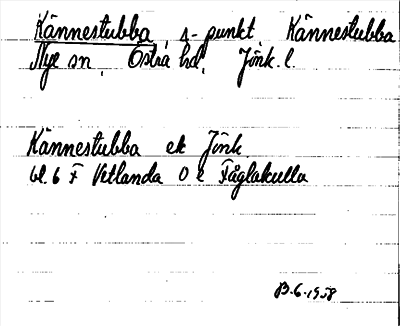 Kännestubba s-punkt Kännestubba
Nye sn, Östra hd, Jönk. l.
Kännestubba ek Jönk
bl. 6 F Vetlanda O e Fåglakulla
B. 6. 1958